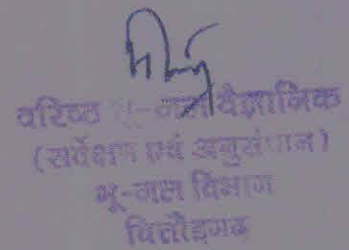 वरिष्ठ भू-जल वैज्ञानिक
(सर्वेक्षण एवं अनुसंधान)
भू-जल विभाग
चित्तौड़गढ